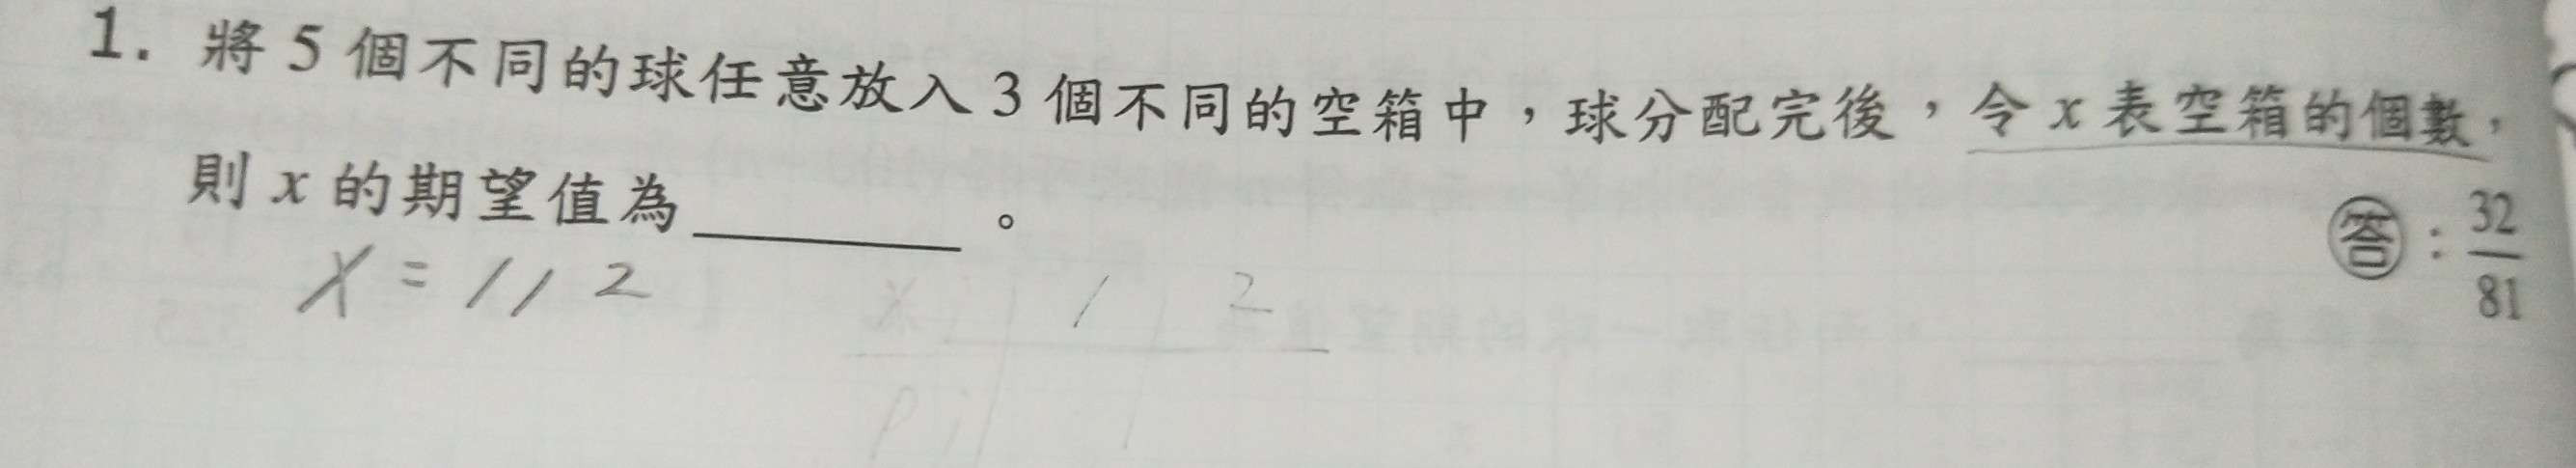 1. 將5個不同的球任意放入3個不同的空箱中，球分配完後，令x表空箱的個數，
則x的期望值為＿＿＿＿。
答：32/81
X = 1 1 2
x 1 2
Pi